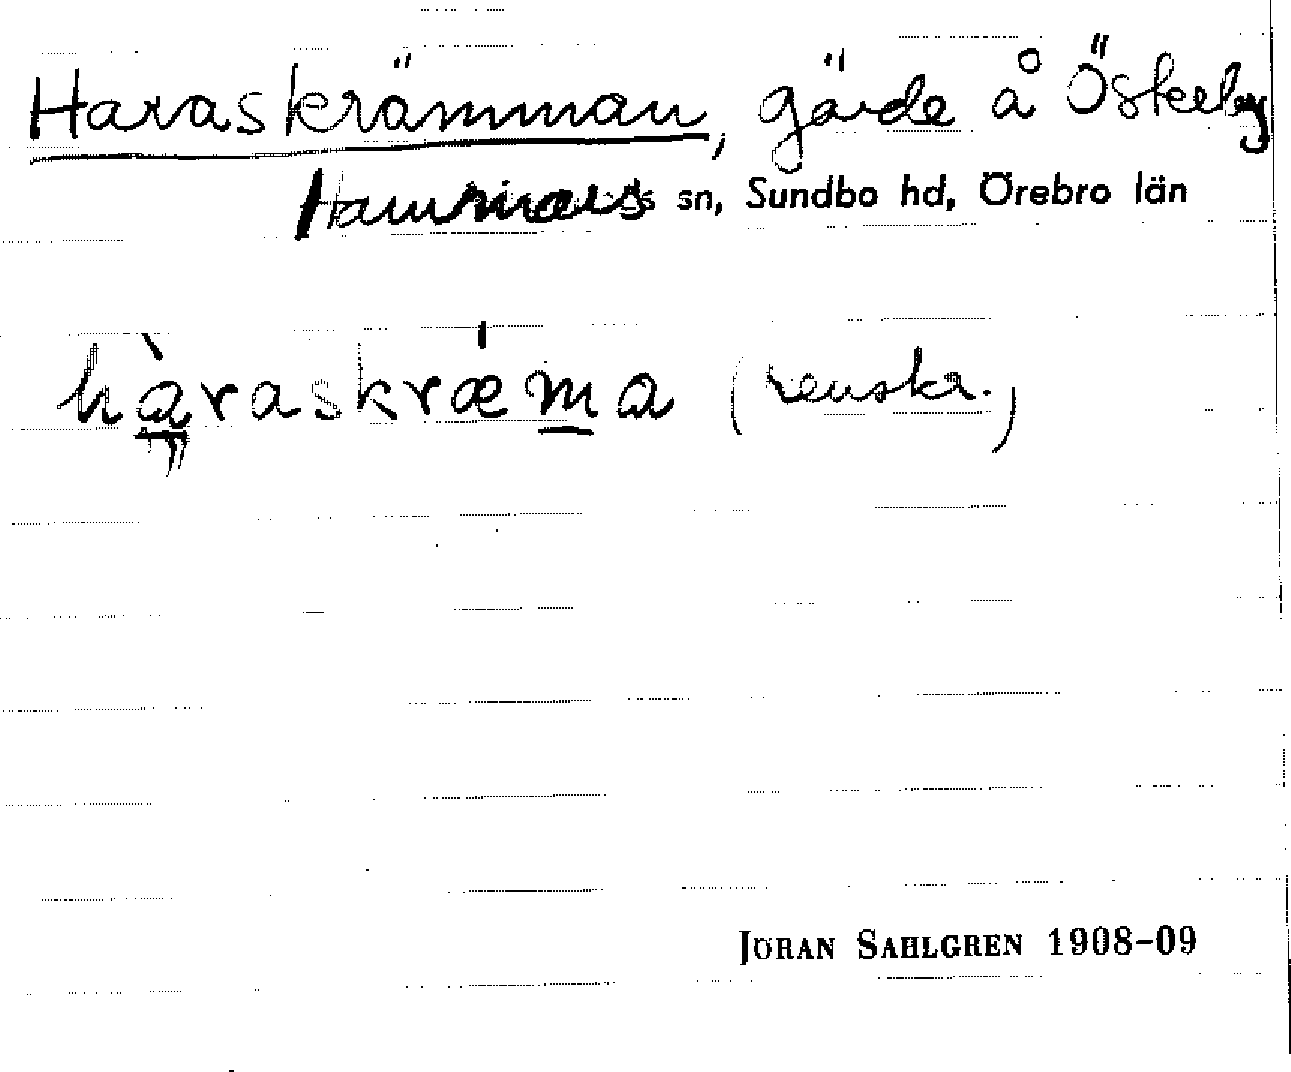 Haraskrämman, gärde å Öskeby
Hammars sn, Sundbo hd, Örebro län
hàraskræ'ma (renskr.)
JÖRAN SAHLGREN 1908-09